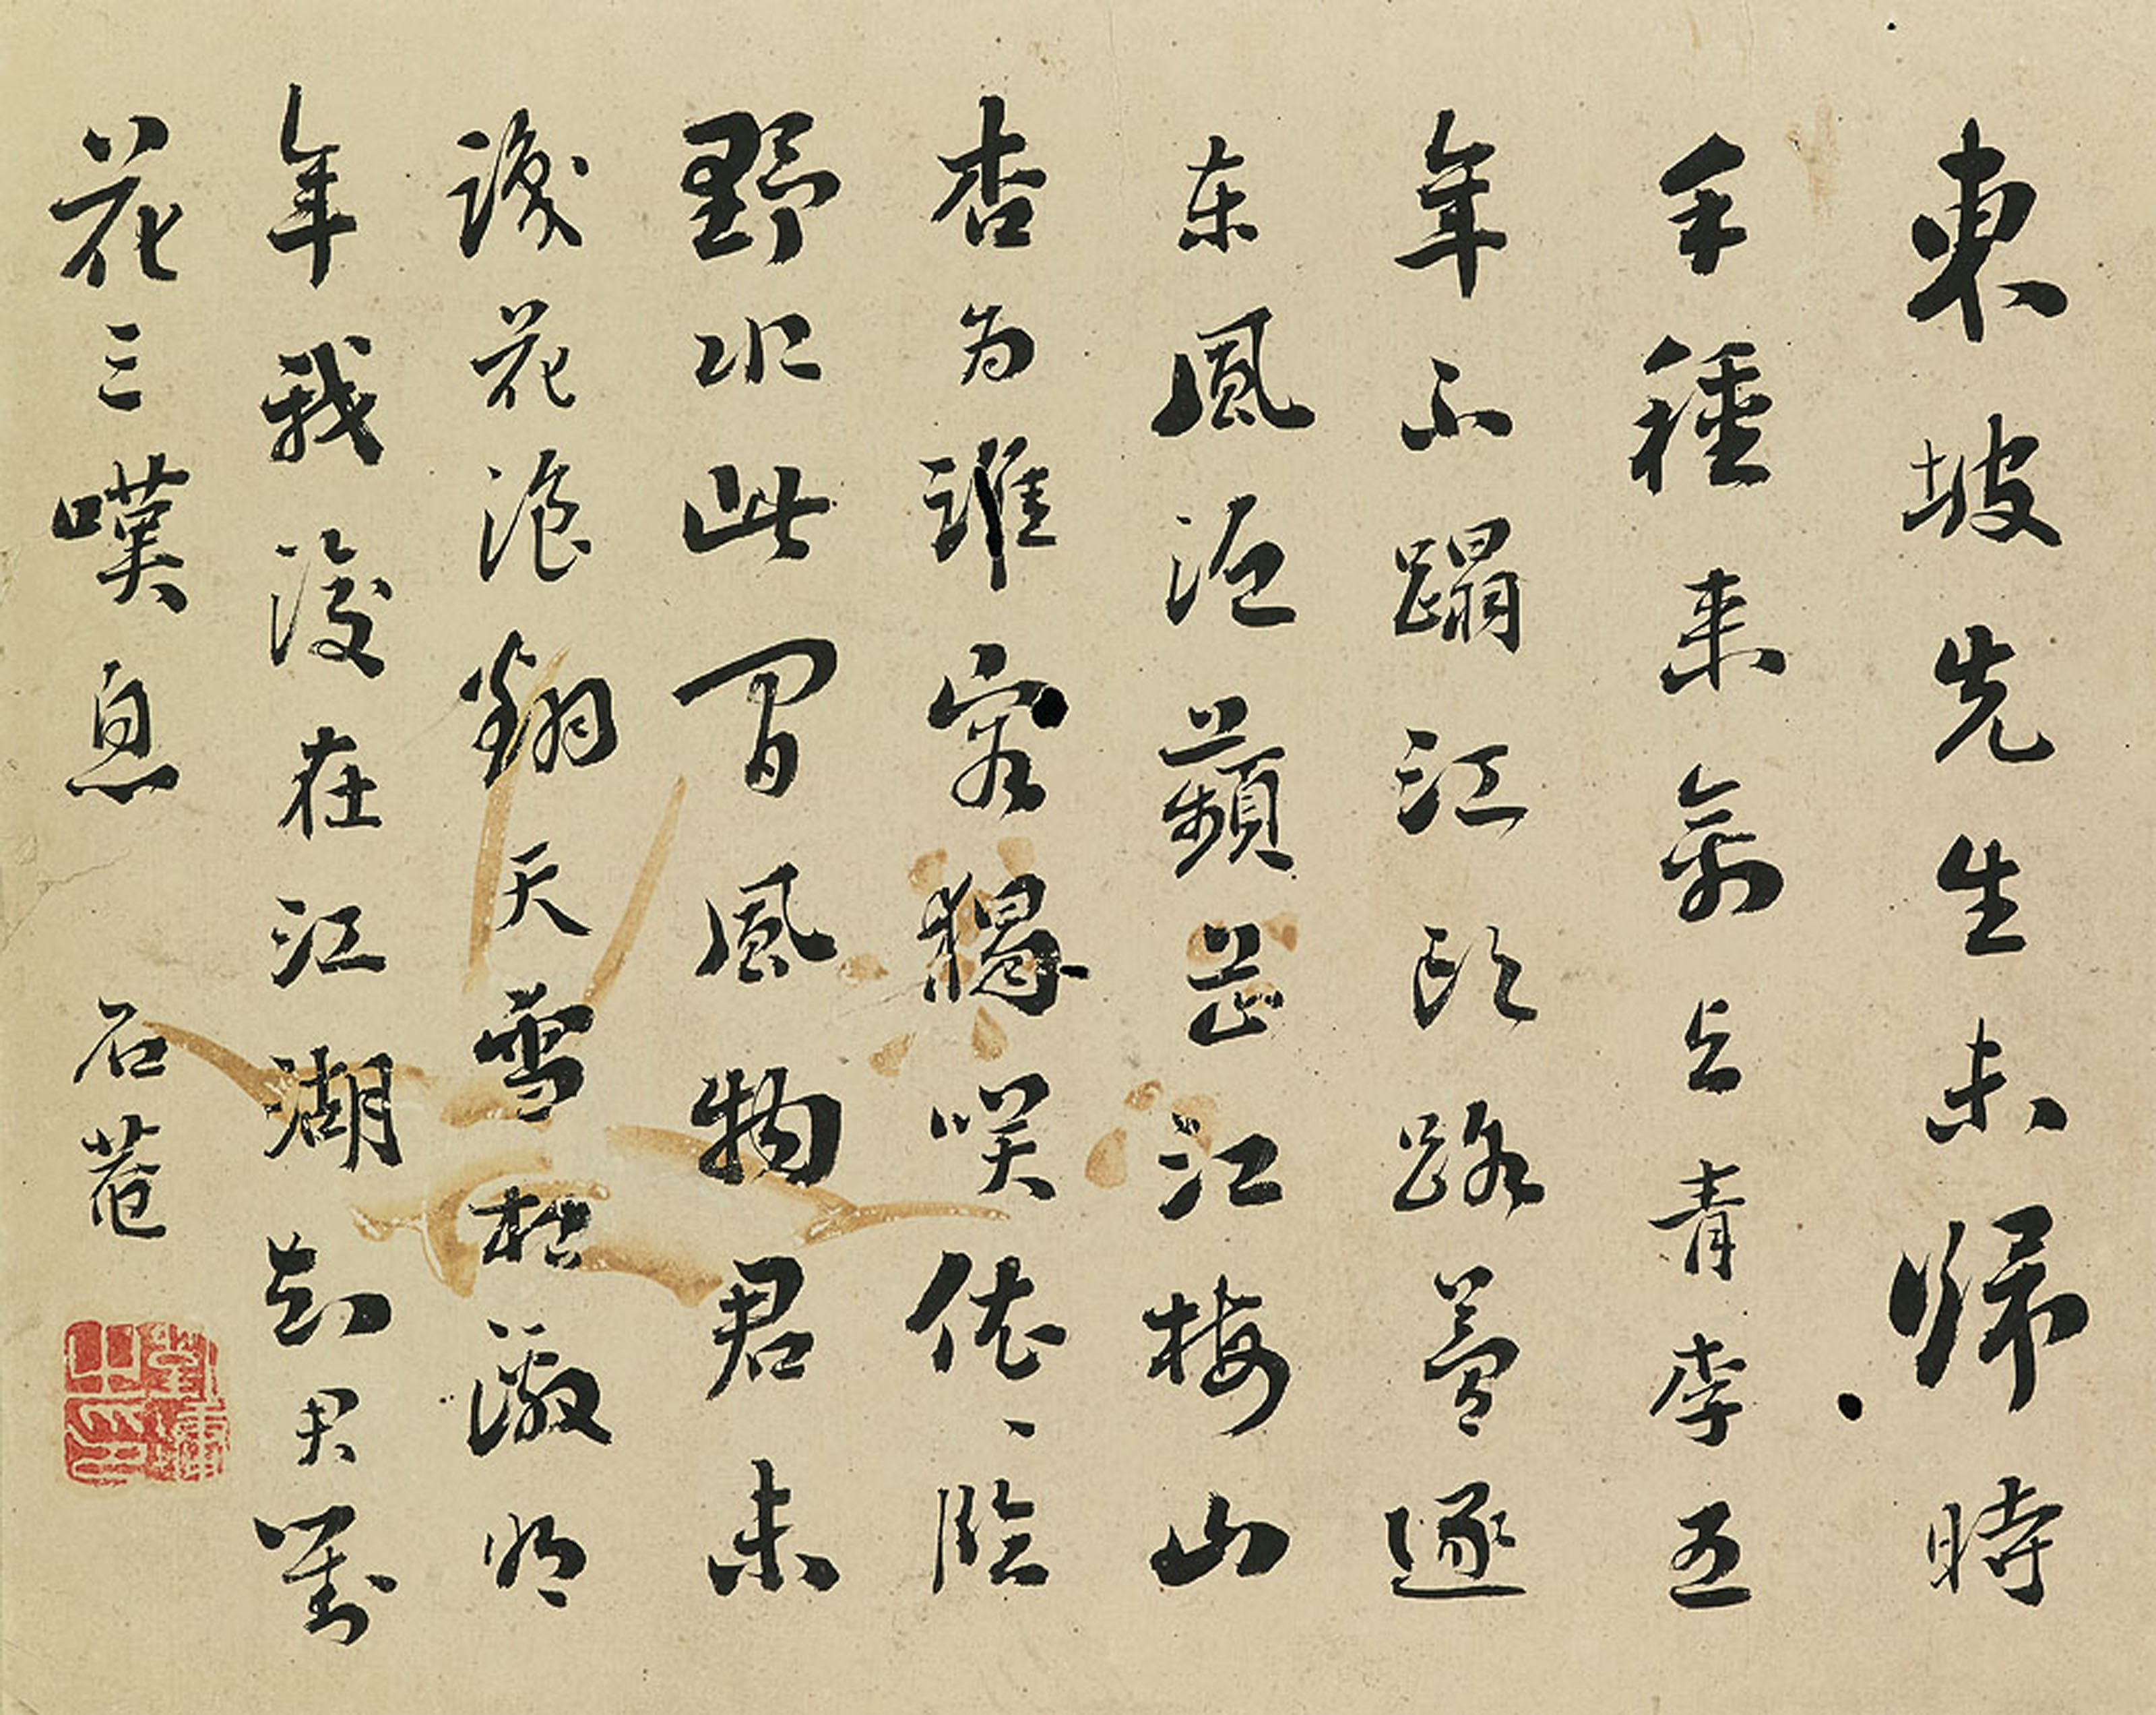 東坡先生未歸時
手種來禽与青李五
年不蹋江頭路夢逐
東風泛蘋芷江梅山
杏為誰容獨咲依〻臨
野水此間風物君未
識花浪翻天雪相激明
年我復在江湖知君對
花三嘆息 石菴
劉墉之印